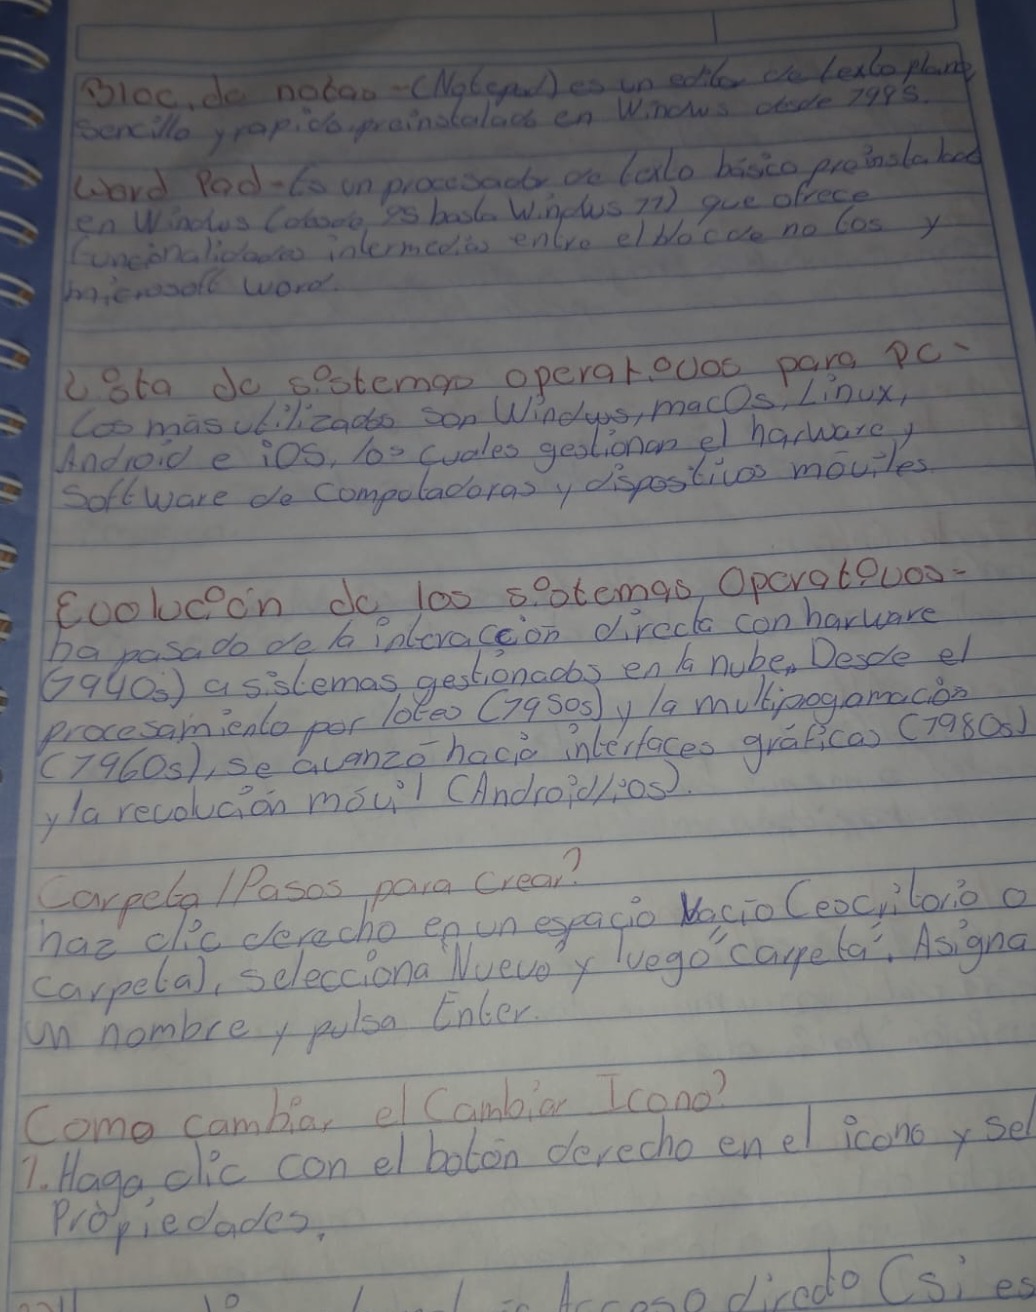 Bloc de notas -(Notepad) es un editor de texto plano
sencillo y rapido preinstalado en Windows desde 1985.
Word Pad- Es un procesador de texto básico preinstalado
en Windows (desde 95 hasta Windows 11) que ofrece
funcionalidades intermedias entre el bloc de notas y
microsoft word.
Lista de sistemas operativos para PC-
Los más utilizados son Windows, macOs, Linux,
Android e iOS, los cuales gestionan el harware y
software de computadoras y dispositivos móviles.
Evolución de los sistemas Operativos-
ha pasado de la interacción directa con harware
(1940s) a sistemas gestionados en la nube. Desde el
procesamiento por lotes (1950s) y la multipogamación
(1960s), se avanzó hacia interfaces gráficas (1980s)
y la revolución móvil (Android/ios).
Carpeta / Pasos para crear?
haz clic derecho en un espacio Vacio (escritorio o
carpeta), selecciona "Nuevo" y luego "carpeta". Asigna
un nombre y pulsa Enter.
Como cambiar el Cambiar Icono?
1. Haga clic con el botón derecho en el icono y sel
Propiedades.
Acceso directo (si es